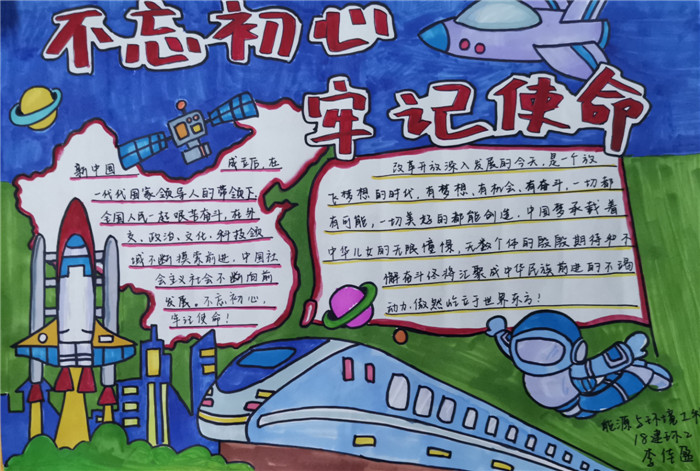 不忘初心
牢记使命
新中国 成立后,在
一代代国家领导人的带领下,
全国人民一起艰苦奋斗,在外
交、政治、文化、科技领
域不断摸索前进,中国社
会主义社会不断向前
发展。不忘初心,
牢记使命!
改革开放深入发展的今天,是一个放
飞梦想的时代,有梦想、有机会、有奋斗,一切都
有可能,一切美好的都能创造。中国梦承载着
中华儿女的无限憧憬,无数个体的殷殷期待和不
懈奋斗终将汇聚成中华民族前进的不竭
动力,傲然屹立于世界东方!
能源与环境工
18建环二
李佳